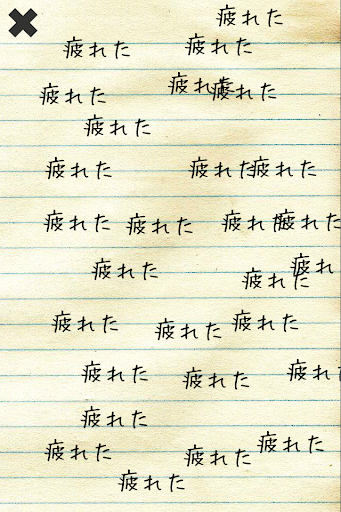 疲れた
疲れた 疲れた
疲れた 疲れた 疲れた
疲れた
疲れた 疲れた 疲れた
疲れた 疲れた 疲れた 疲れた
疲れた 疲れた 疲れ
疲れた 疲れた 疲れた
疲れた 疲れた 疲れた
疲れた
疲れた 疲れた 疲れた
疲れた